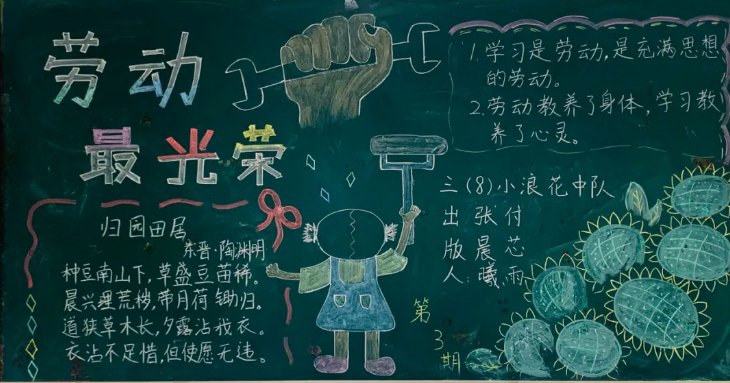 劳动
最光荣
归园田居
东晋·陶渊明
种豆南山下，草盛豆苗稀。
晨兴理荒秽，带月荷锄归。
道狭草木长，夕露沾我衣。
衣沾不足惜，但使愿无违。
1.学习是劳动，是充满思想
的劳动。
2.劳动教养了身体，学习教
养了心灵。
三（8）小浪花中队
出 张 付
版 晨 芯
人：曦 雨
第
3
期